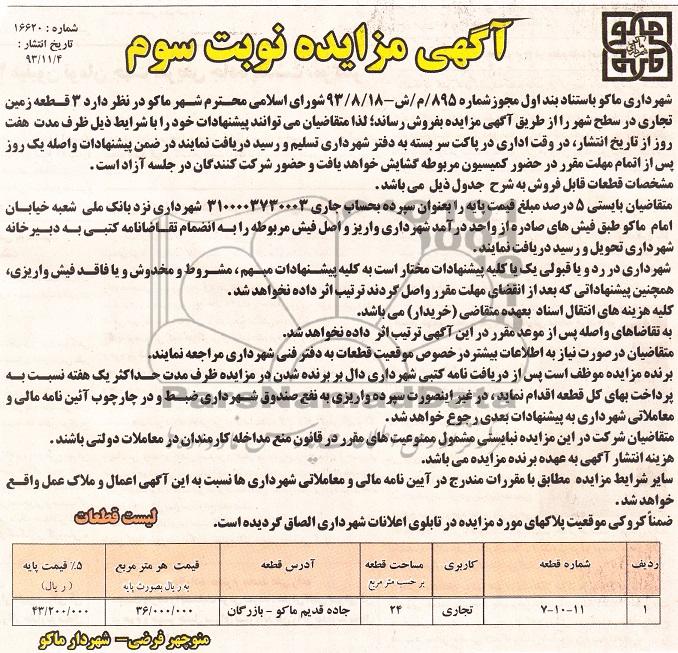 شماره : ۱۶۶۲۰
تاریخ انتشار :
۹۳/۱۱/۴
آگهی مزایده نوبت سوم
شهرداری ماکو باستناد بند اول مجوز شماره ۸۹۵/م/ش-۹۳/۸/۱۸ شورای اسلامی محترم شهر ماکو در نظر دارد ۳ قطعه زمین
تجاری در سطح شهر را از طریق آگهی مزایده بفروش رساند؛ لذا متقاضیان می توانند پیشنهادات خود را با شرایط ذیل ظرف مدت هفت
روز از تاریخ انتشار، در وقت اداری در پاکت سر بسته به دفتر شهرداری تسلیم و رسید دریافت نمایند در ضمن پیشنهادات واصله یک روز
پس از اتمام مهلت مقرر در حضور کمیسیون مربوطه گشایش خواهد یافت و حضور شرکت کنندگان در جلسه آزاد است.
مشخصات قطعات قابل فروش به شرح جدول ذیل می باشد.
متقاضیان بایستی ۵ درصد مبلغ قیمت پایه را بعنوان سپرده بحساب جاری ۳۱۰۰۰۰۳۷۳۰۰۰۳ شهرداری نزد بانک ملی شعبه خیابان
امام ماکو طبق فیش های صادره از واحد درآمد شهرداری واریز و اصل فیش مربوطه را به انضمام تقاضانامه کتبی به دبیرخانه
شهرداری تحویل و رسید دریافت نمایند.
شهرداری در رد و یا قبولی یک یا کلیه پیشنهادات مختار است به کلیه پیشنهادات مبهم، مشروط و مخدوش و یا فاقد فیش واریزی،
همچنین پیشنهاداتی که بعد از انقضای مهلت مقرر واصل کردند ترتیب اثر داده نخواهد شد.
کلیه هزینه های انتقال اسناد بعهده متقاضی (خریدار) می باشد.
به تقاضاهای واصله پس از موعد مقرر در این آگهی ترتیب اثر داده نخواهد شد.
متقاضیان در صورت نیاز به اطلاعات بیشتر در خصوص موقعیت قطعات به دفتر فنی شهرداری مراجعه نمایند.
برنده مزایده موظف است پس از دریافت نامه کتبی شهرداری دال بر برنده شدن در مزایده ظرف مدت حداکثر یک هفته نسبت به
پرداخت بهای کل قطعه اقدام نماید، در غیر اینصورت سپرده واریزی به نفع صندوق شهرداری ضبط و در چارچوب آئین نامه مالی و
معاملاتی شهرداری به پیشنهادات بعدی رجوع خواهد شد.
متقاضیان شرکت در این مزایده نبایستی مشمول ممنوعیت های مقرر در قانون منع مداخله کارمندان در معاملات دولتی باشند.
هزینه انتشار آگهی به عهده برنده مزایده می باشد.
سایر شرایط مزایده مطابق با مقررات مندرج در آیین نامه مالی و معاملاتی شهرداری ها نسبت به این آگهی اعمال و ملاک عمل واقع
خواهد شد.
ضمناً کروکی موقعیت پلاکهای مورد مزایده در تابلوی اعلانات شهرداری الصاق گردیده است.
لیست قطعات
ردیف شماره قطعه کاربری مساحت قطعه بر حسب متر مربع آدرس قطعه قیمت هر متر مربع به ریال بصورت پایه ۵٪ قیمت پایه (ریال)
۱ ۱۱-۱۰-۷ تجاری ۲۴ جاده قدیم ماکو - بازرگان ۳۶/۰۰۰/۰۰۰ ۴۳/۲۰۰/۰۰۰
منوچهر فرضی- شهردار ماکو
ParsNamadData